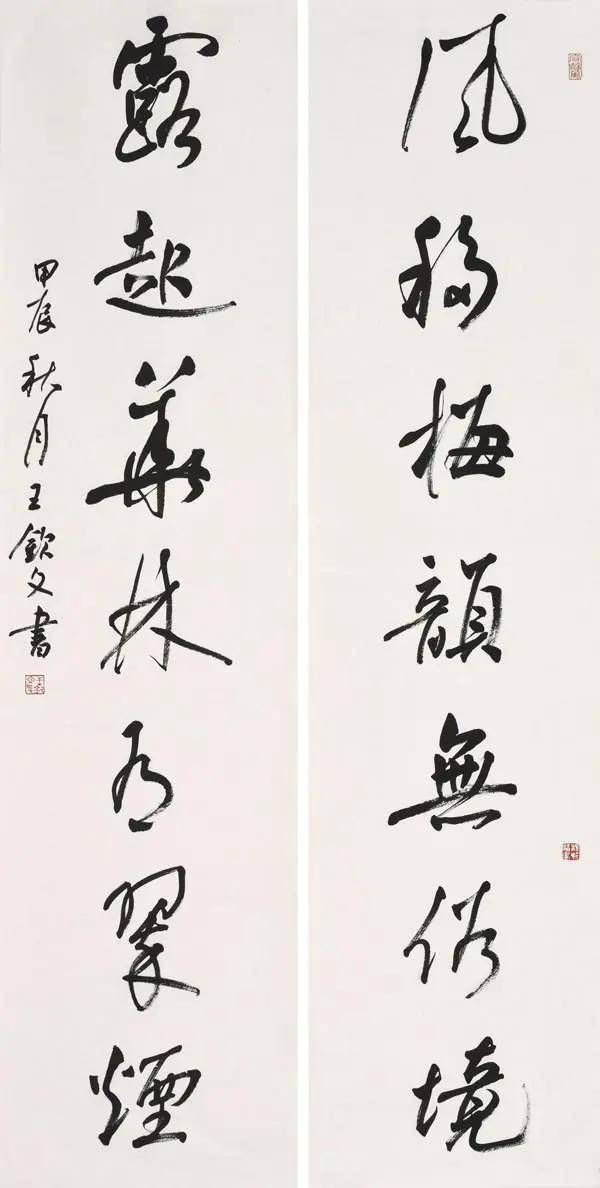 風移梅韻無俗境
露起華林有翠煙
甲辰秋月王欽文書